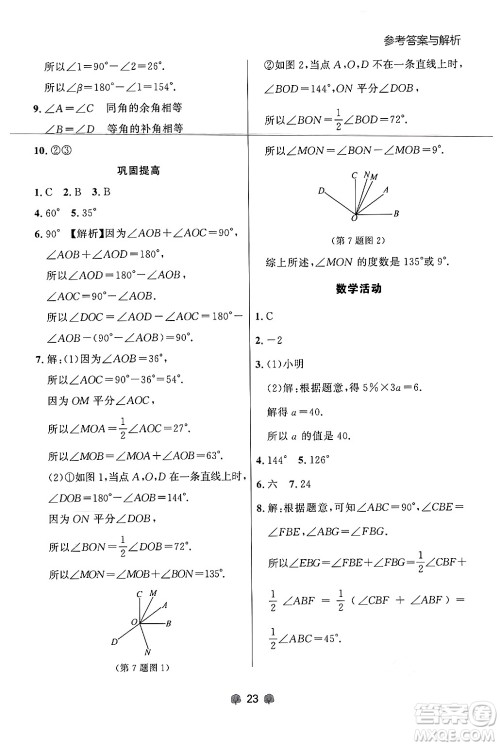 参考答案与解析
所以∠1=∠2=26°.
所以∠β=180°-∠1=154°.
9. ∠A=∠C 同角的余角相等
∠B=∠D 等角的补角相等
10. ②③
巩固提高
1. C 2. B 3. B
4. 60° 5. 35°
6. 90° 【解析】因为∠AOB+∠AOC=90°,
所以∠AOB=90°-∠AOC.
因为∠AOD-∠AOC=90°,
所以∠DOC=90°-∠AOC+∠AOC=90°.
7. 解:(1)因为∠AOB=36°,
所以∠AOC=90°-36°=54°.
因为OM平分∠AOC,
所以∠MOA=1/2∠AOC=27°.
所以∠MOB=∠MOA+∠AOB=63°.
(2)①如图1,当点A,O,D在一条直线上时,
∠DOB=180°-36°=144°.
因为ON平分∠DOB,
所以∠BON=1/2∠DOB=72°.
所以∠MON=∠MOB+∠BON=135°.
C M
A
O B
D
N
(第7题图1)
②如图2,当点A,O,D不在一条直线上时,
∠BOD=144°,ON平分∠DOB,
所以∠BON=1/2∠BOD=72°.
所以∠MON=∠BON-∠MOB=9°.
C N
M
D A
O B
(第7题图2)
综上所述,∠MON的度数是135°或9°.
数学活动
1. C
2. -2
3. (1)小明
(2)解:根据题意,得5%×3a=6.
解得a=40.
所以a的值是40.
4. 144° 5. 126°
6. 六 7. 24
8. 解:根据题意,可知∠ABC=90°,∠CBE=
∠FBE,∠ABG=∠FBG.
所以∠EBG=∠FBE+∠FBG=1/2∠CBF+
1/2∠ABF=1/2×(∠CBF+∠ABF)=
1/2∠ABC=45°.
23
答案圈